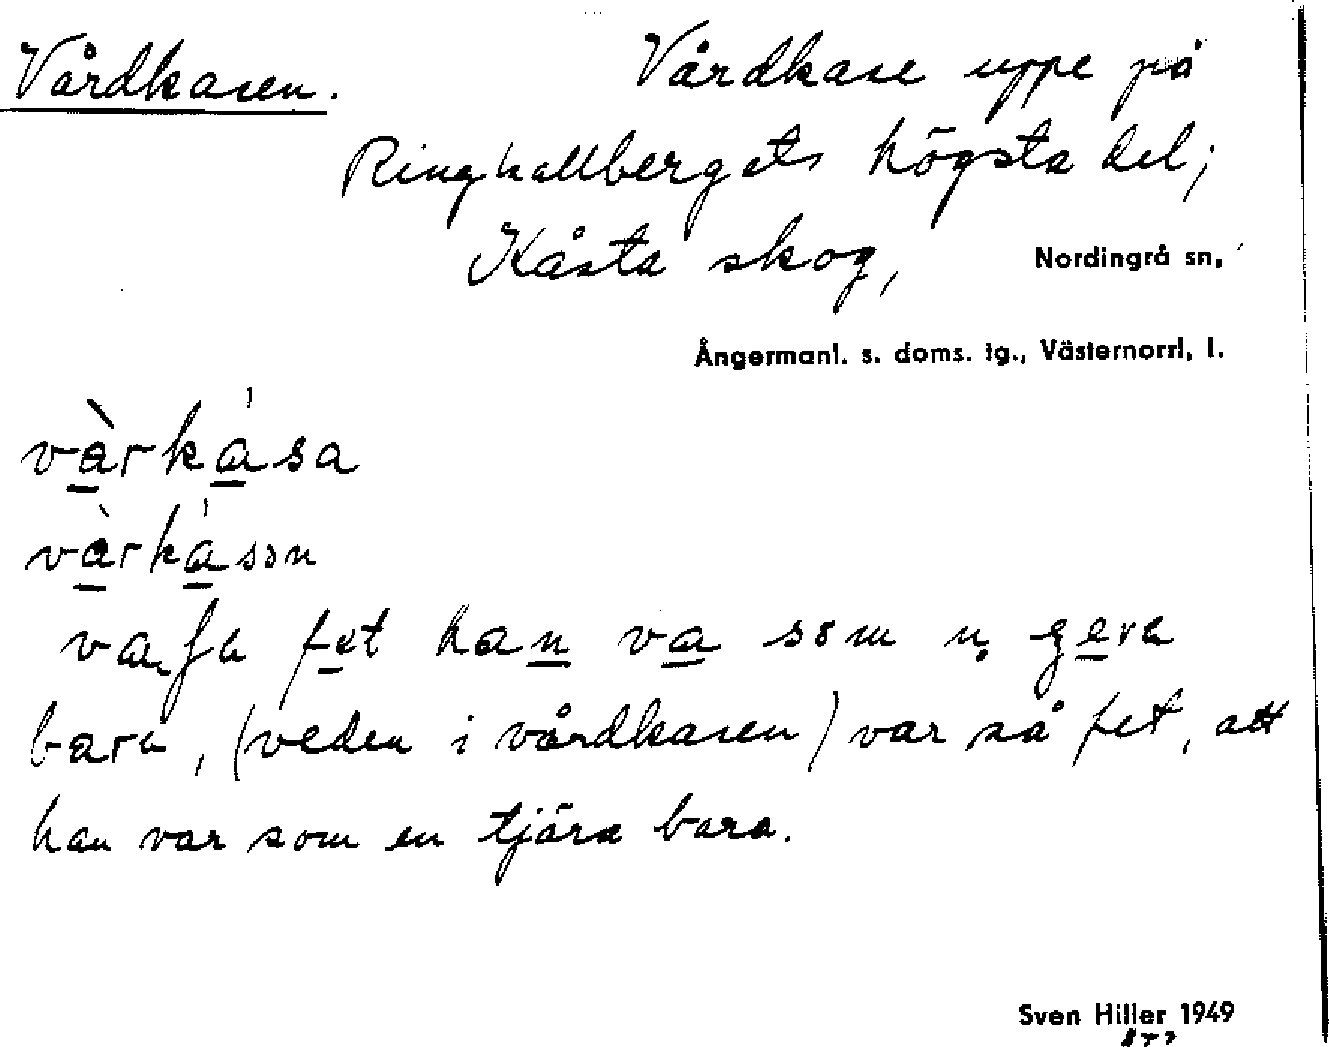 Vårdkasen. Vårdkase uppe på
Ringkallbergets högsta del;
Kåsta skog, Nordingrå sn,
Ångermanl. s. doms. tg., Västernorrl. l.
vàrkása
vàrkásən
fet han va som n gera
bara, (veden i vårdkasen) var så fet, att
han var som en tjära bara.
Sven Hiller 1949